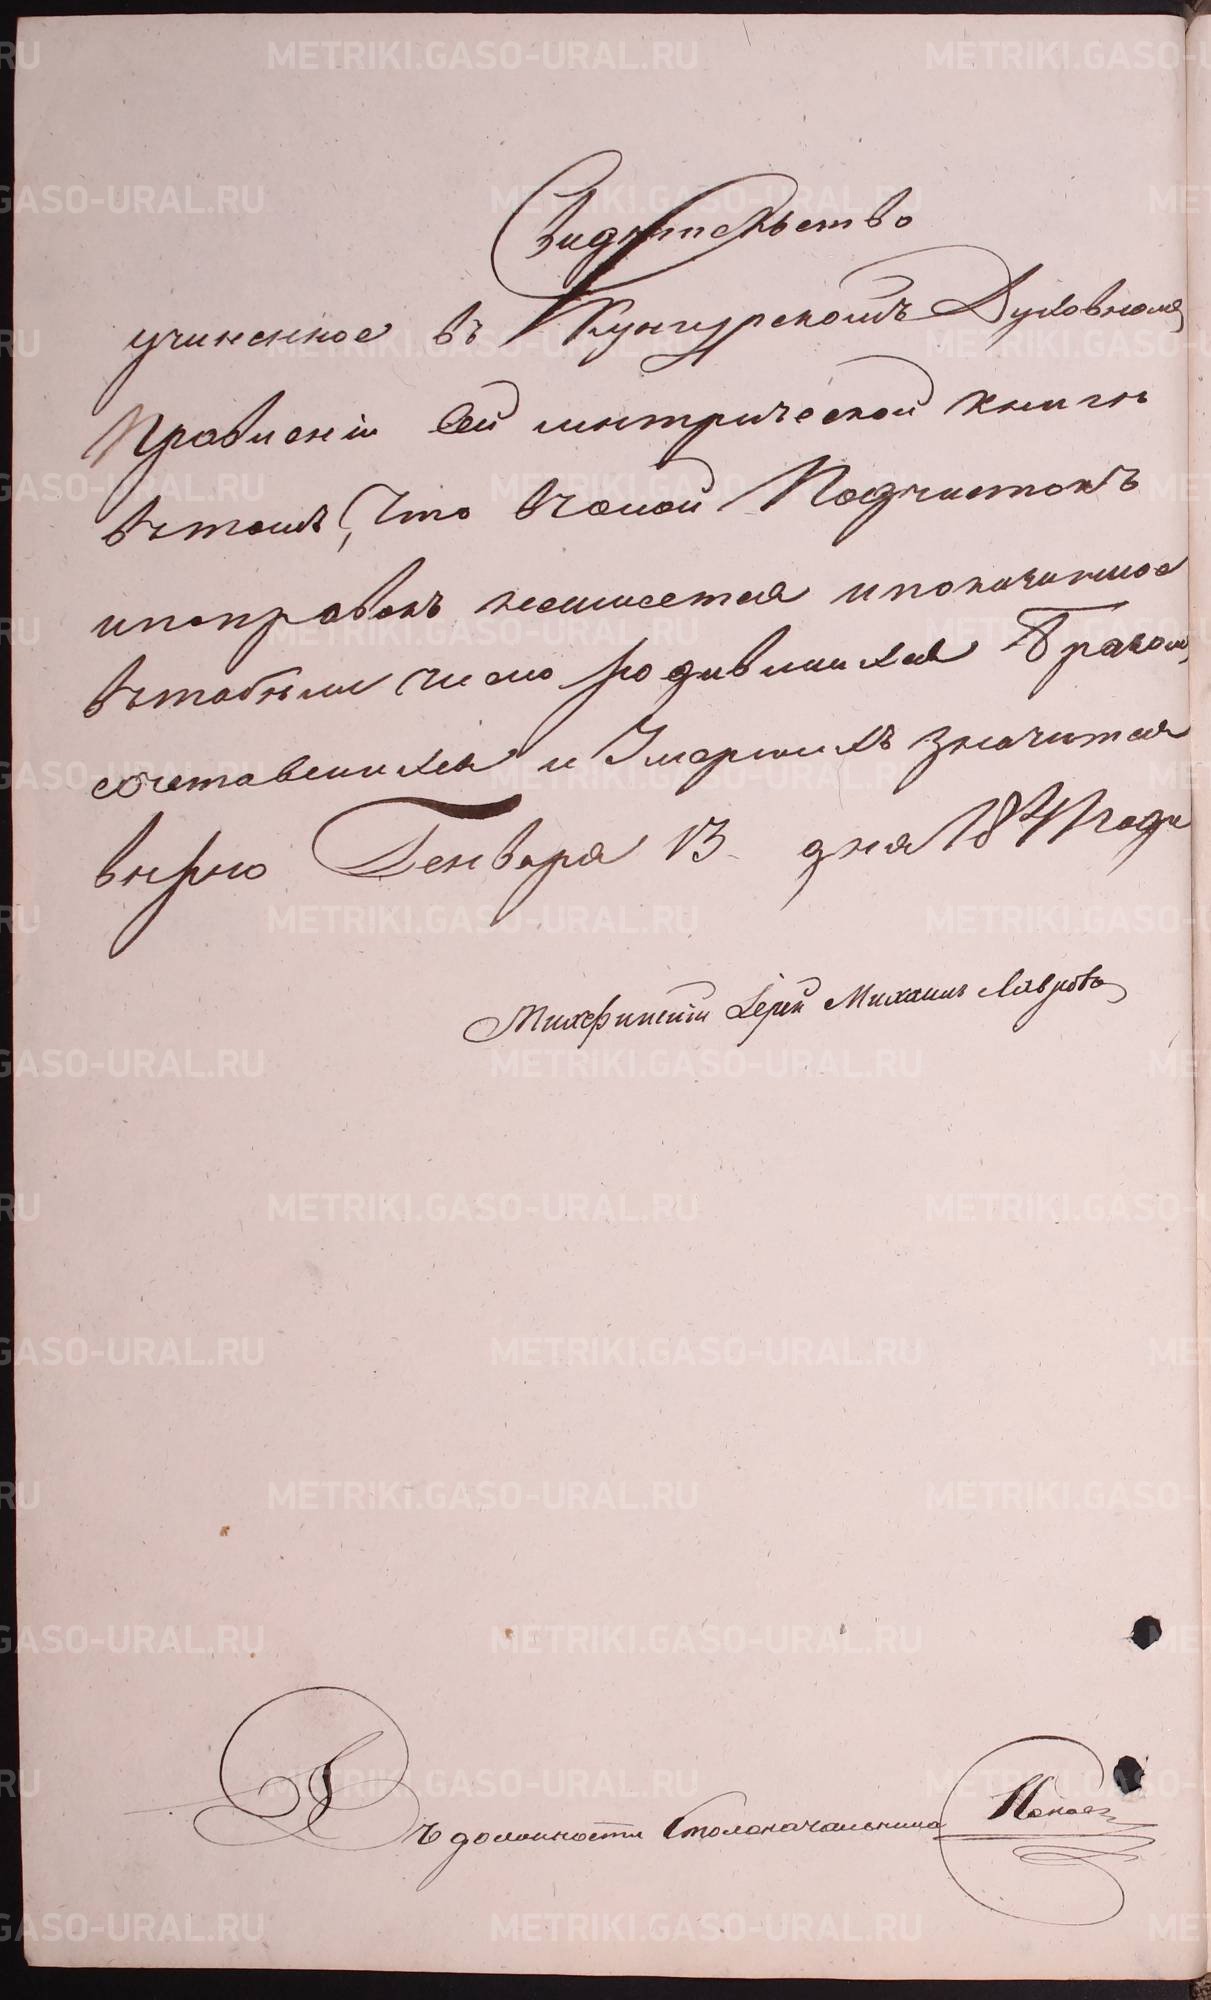 Свидѣтельство
учиненное въ Кунгурскомъ Духовномъ
Правленіи Сей метрической книгѣ
вътомъ, Что въоной Подчистокъ
ипоправокъ неимеется ипоказанное
вътабѣли число родившихся Бракомъ
сочетавшихся и Умершихъ значится
вѣрно Генваря 13 дня 1841 года
Іерей Михаилъ Лавровъ
Въ должности Столоначальника